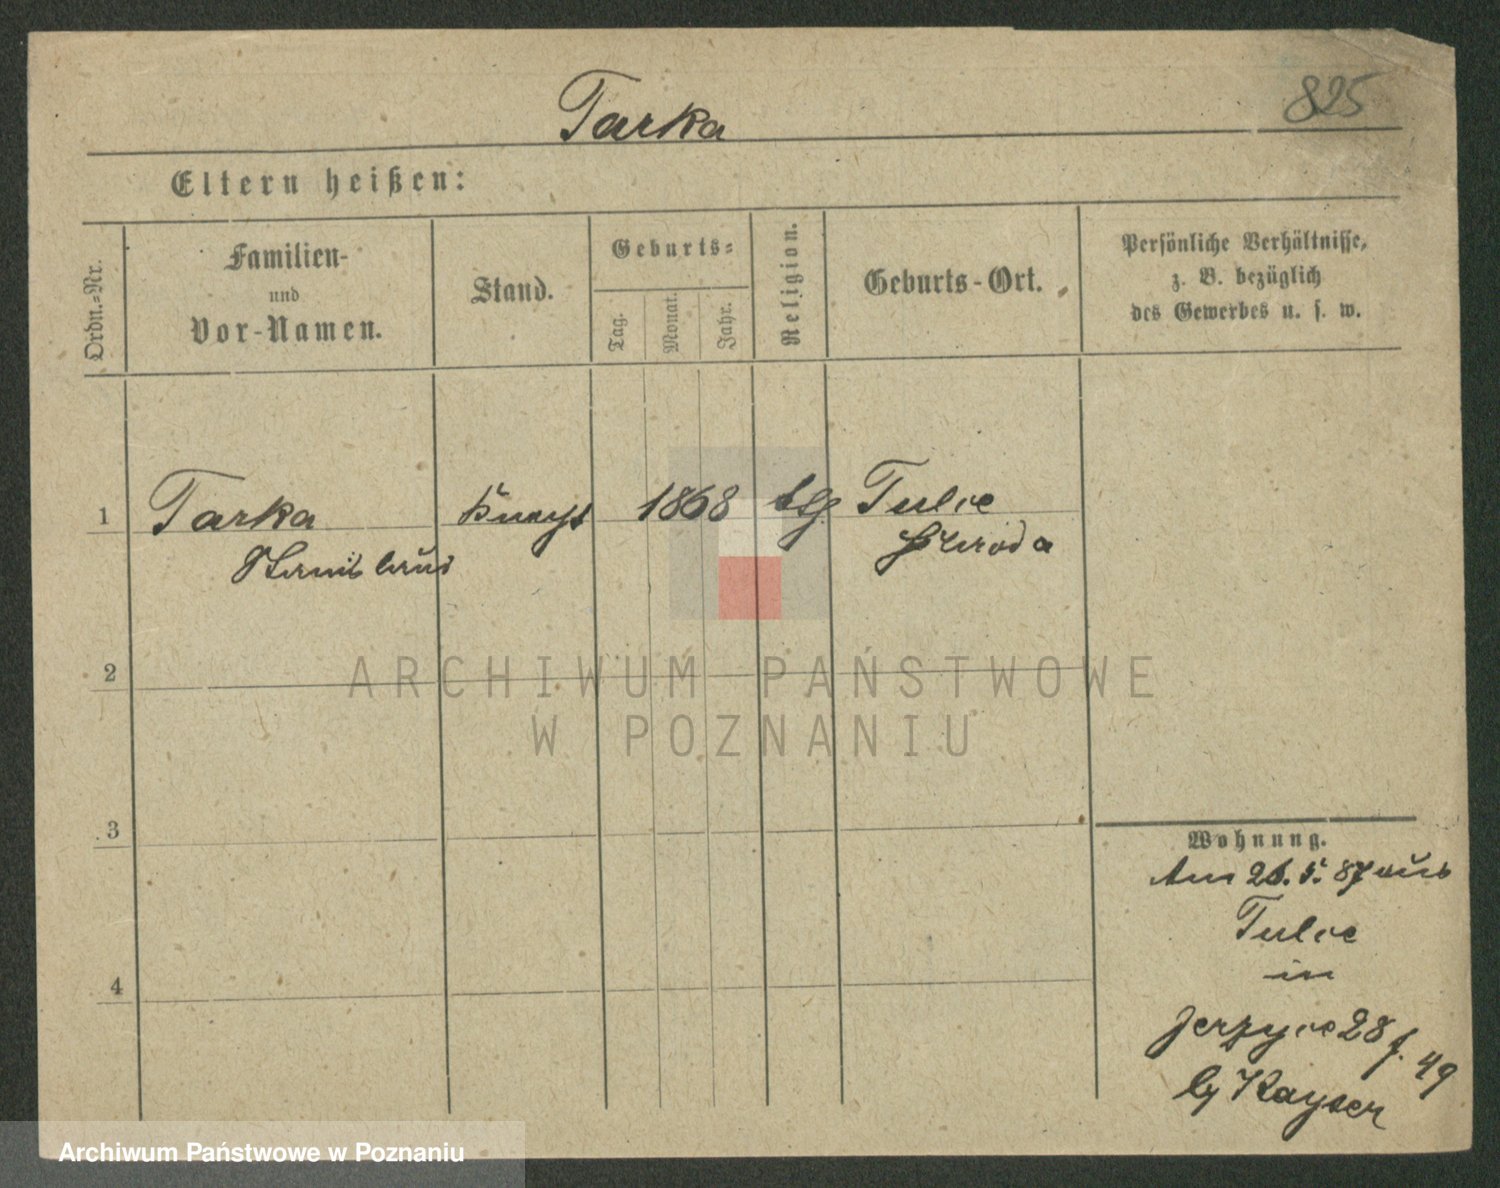 825
Tarka
Eltern heißen:
Ordn.=Nr.
Familien-
und
Vor-Namen.
Stand.
Geburts=
Tag.
Monat.
Jahr.
Religion.
Geburts-Ort.
Persönliche Verhältnisse,
z. B. bezüglich
des Gewerbes u. s. w.
1 Tarka Knecht 1868 ktl Tulce
Stanislaus Schroda
2
3
4
Wohnung.
Am 26. 5. 87 aus
Tulce
in
Jerzyce 28 f. 49
bj Kayser
ARCHIWUM PAŃSTWOWE
W POZNANIU
Archiwum Państwowe w Poznaniu